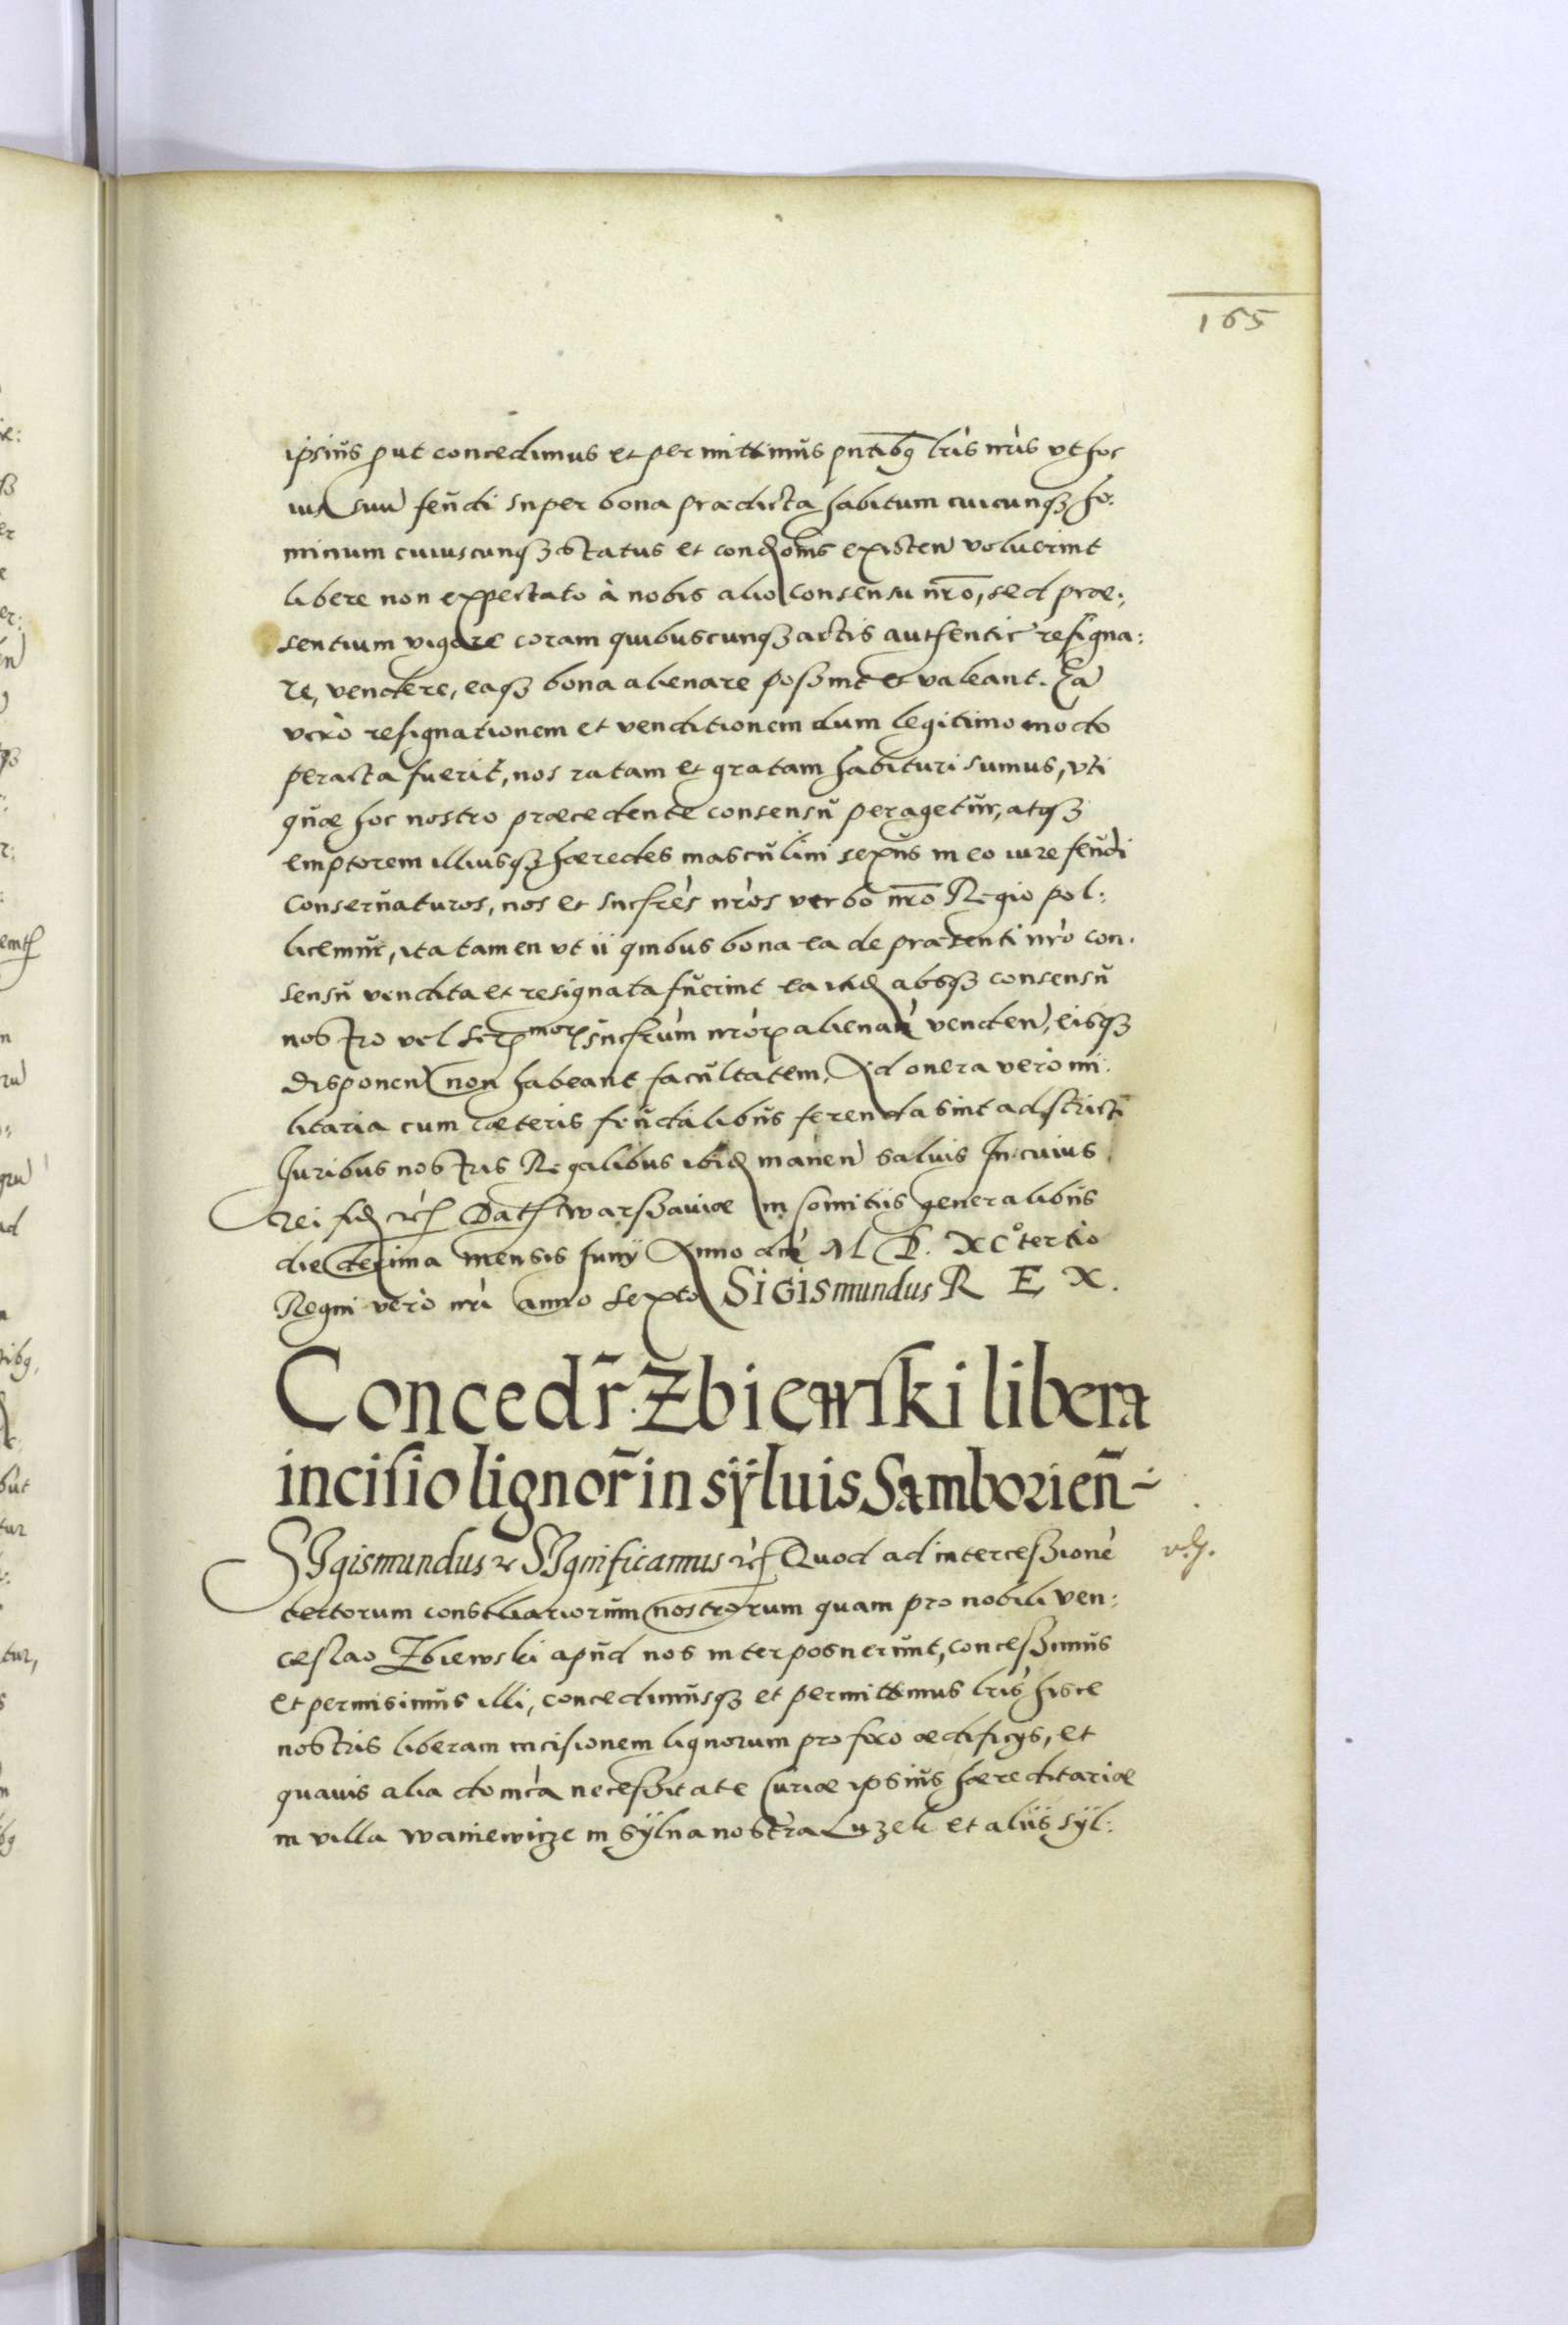 165
ipsius put concedimus et permittimus pntibq lris nris vt hoc
ius suu feudi super bona praedicta habitum cuicunqз ho:
minum cuiuscunqз status et condoms existen voluerint
libere non expectato à nobis alio consensu nro, sed prae:
sentium vigore coram quibuscunqз actis authentic resigna:
re, vendere, eaqз bona alienare possint et valeant. Ea
verò resignationem et venditionem dum legitimo modo
peracta fuerit, nos ratam et gratam habituri sumus, vti
quae hoc nostro praecedente consensu peragetur, atqз
emptorem illiusqз haeredes masculini sexus in eo iure feudi
conseruaturos, nos et sucsres nros verbo nro Regio pol:
licemur, ita tamen vt ii quibus bona ea de praesenti nro con:
sensu vendita et resignata fuerint ea itid absqз consensu
nostro vel Ser morum sucsrum nror alienan venden, eisqз
disponen non habeant facultatem, Ad onera vero mi:
litaria cum caeteris feudalibus ferenda sint adstricti
Juribus nostris Regalibus ibid manen saluis In cuius
rei fid etc Dat Warssaviae in Comitiis generalibus
die decima mensis Junij Anno dni M D. XC° tertio
Regni verò nri anno sexto SIGISmundus R E X.
Concedr. Zbiewski libera
incisio lignor in syluis Samborien
SIgismundus etc SIgnificamus etc Quod ad intercessione
certorum consiliariorum nostrorum quam pro nobili Ven:
ceslao Zbiewski apud nos interposuerunt, concessimus
et permisimus illi, concedimusqз et permittimus lris hisce
nostris liberam incisionem lignorum pro foco aedificijs, et
quauis alia domca necessitate Curiae ipsius haereditariae
in villa Waniewicze in sylua nostra Luzek et aliis syl: